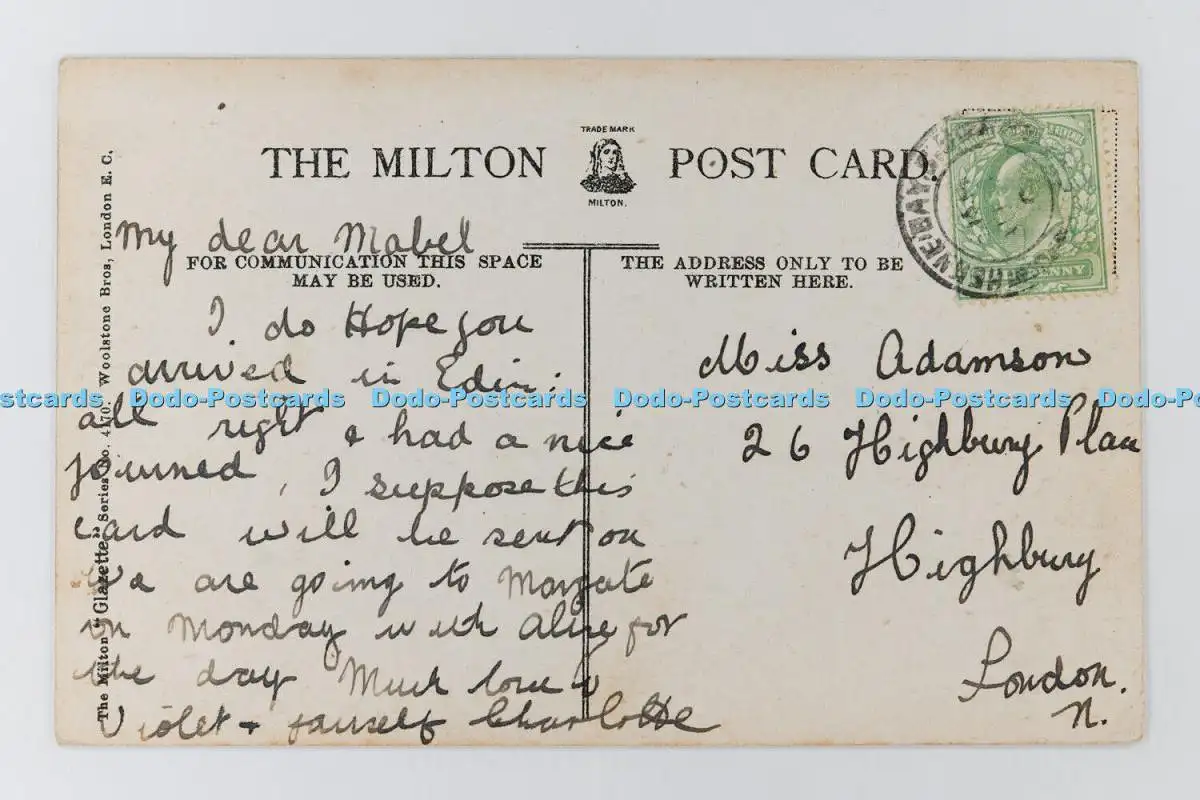 TRADE MARK
THE MILTON POST CARD.
MILTON.
HERNE BAY
PENNY
My dear Mabel
FOR COMMUNICATION THIS SPACE
MAY BE USED.
I do Hope you
arrived in Edin:
all right & had a nice
journed, I suppose this
card will be sent on
We are going to Margate
on Monday with Alice for
the day Much love
Violet & yourself Charlotte
THE ADDRESS ONLY TO BE
WRITTEN HERE.
Miss Adamson
26 Highbury Place
Highbury
London.
N.
The Milton "Glazette" Series No. Woolstone Bros, London E. C.
Dodo-Postcards Dodo-Postcards Dodo-Postcards Dodo-Postcards